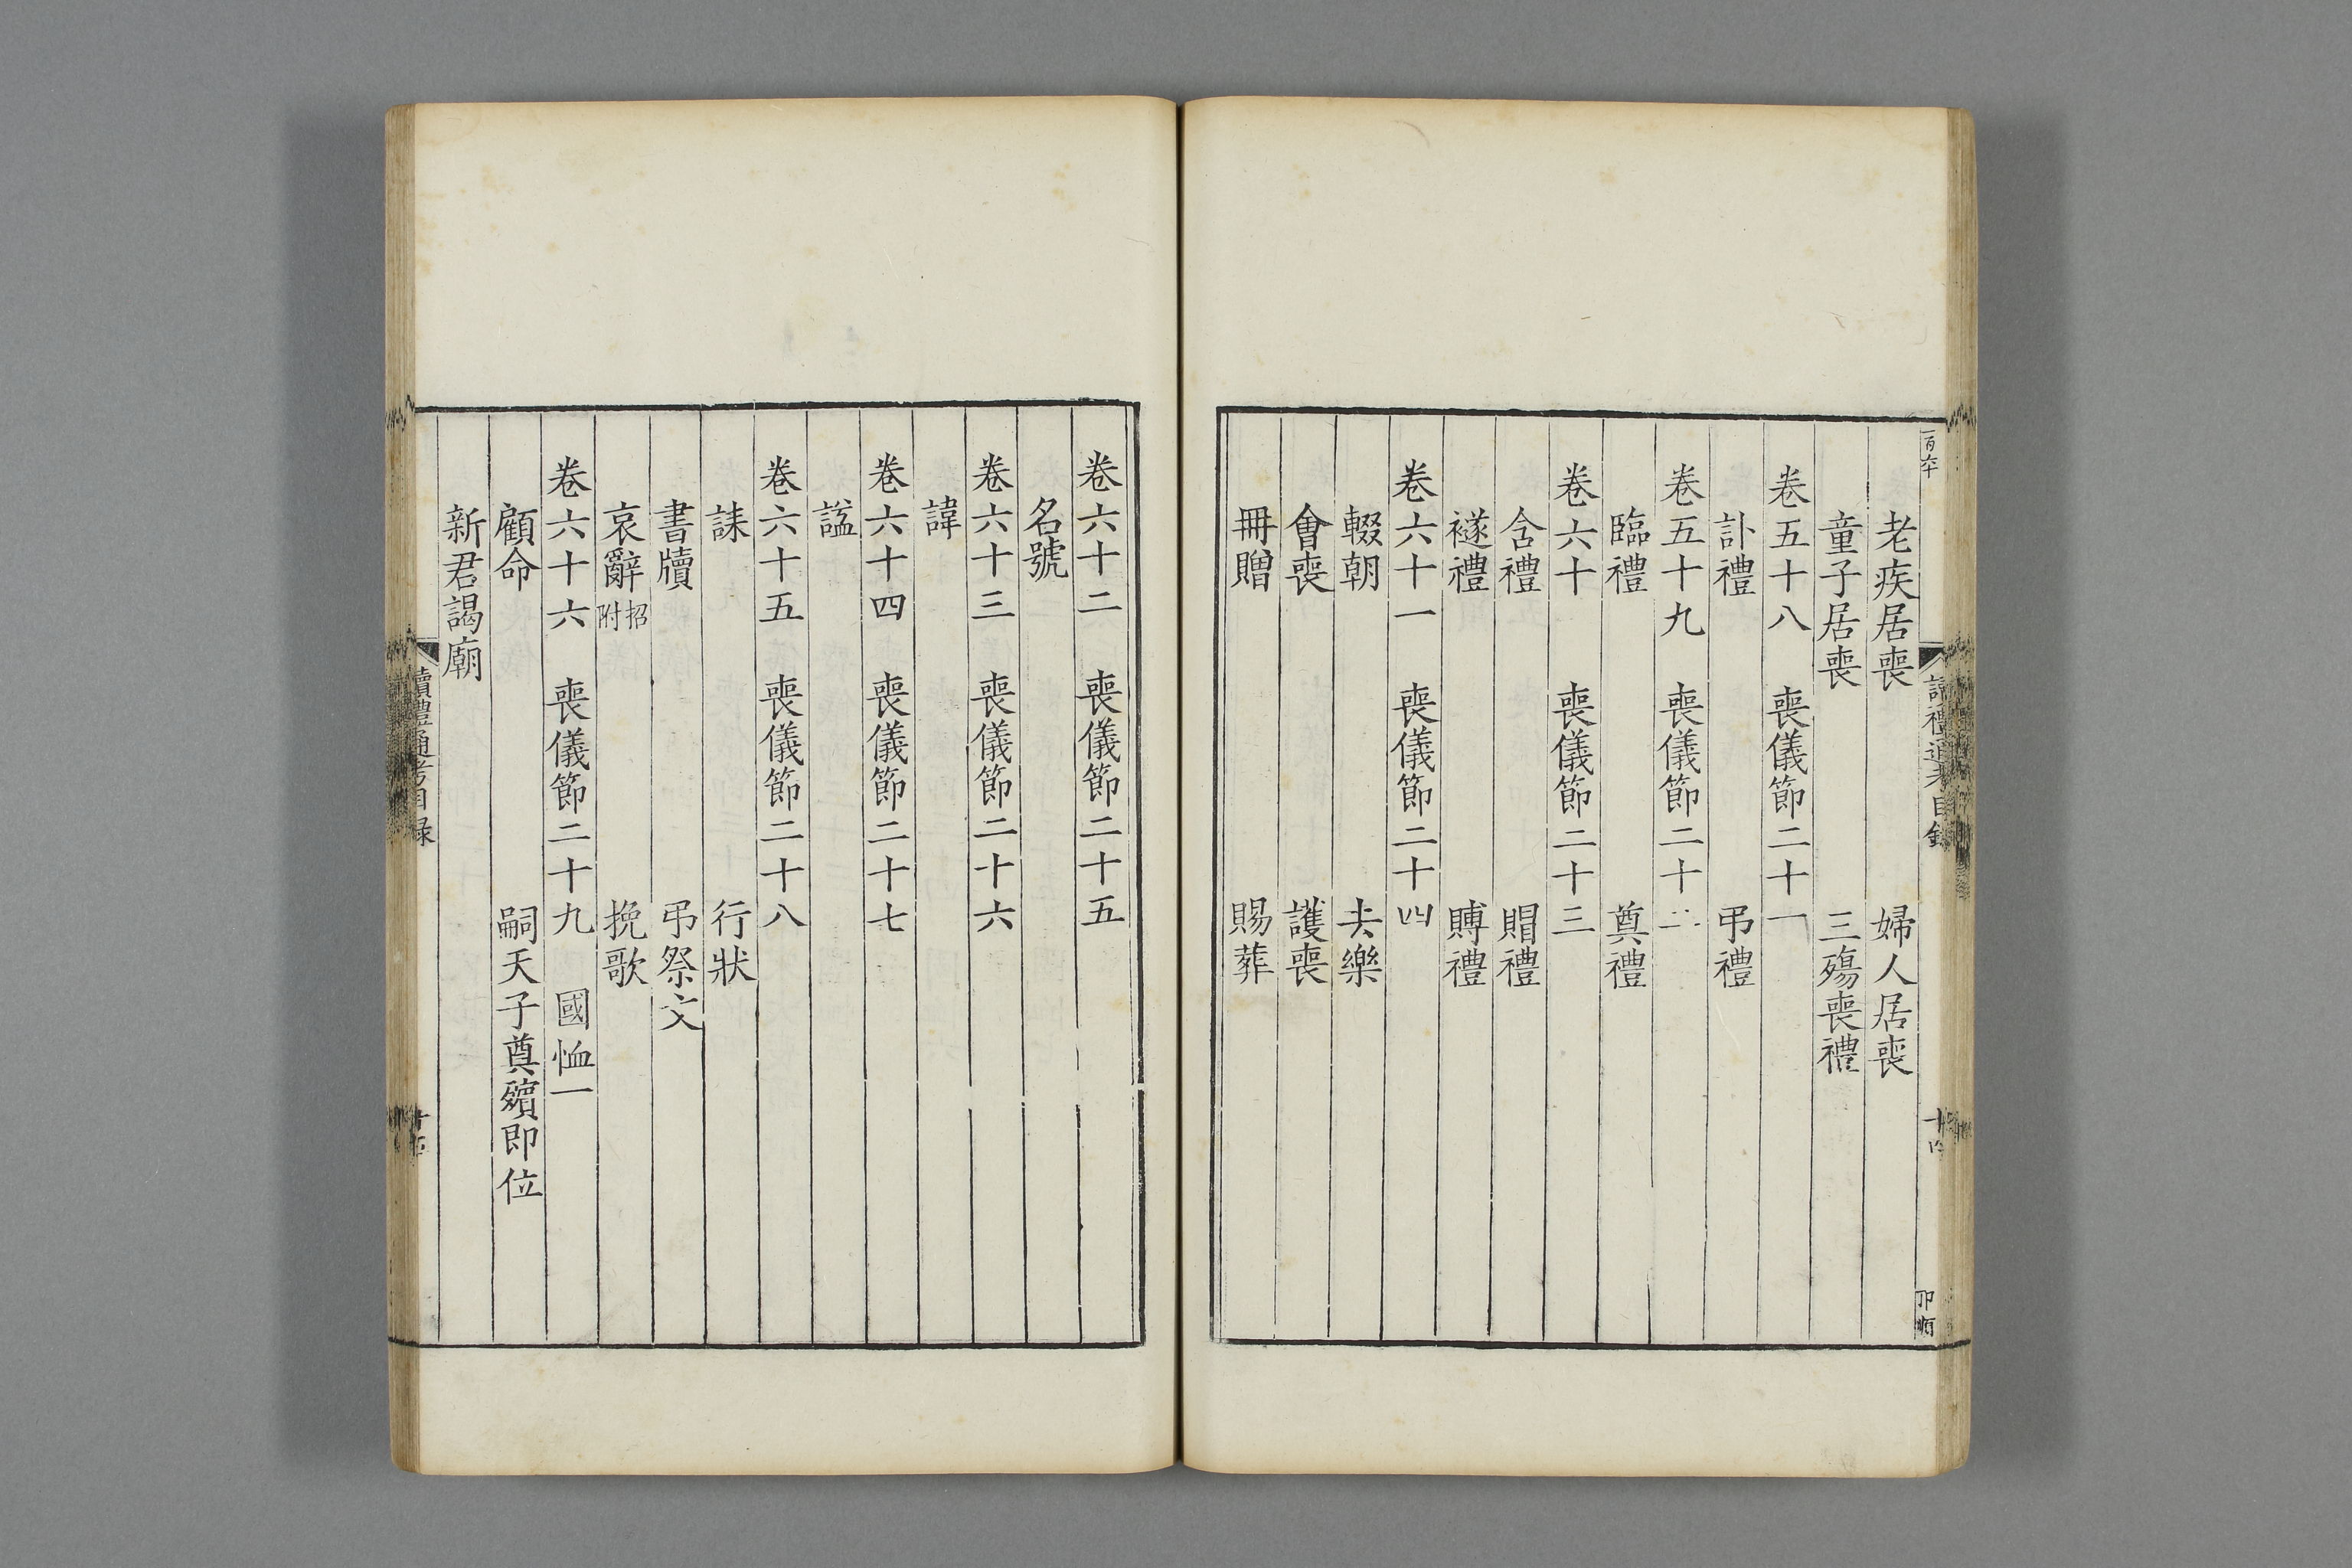 老疾居喪　婦人居喪
童子居喪　三殤喪禮
卷五十八　喪儀節二十一
訃禮　弔禮
卷五十九　喪儀節二十二
臨禮　奠禮
卷六十　喪儀節二十三
含禮　賵禮
襚禮　賻禮
卷六十一　喪儀節二十四
輟朝　去樂
會喪　護喪
冊贈　賜葬
卷六十二　喪儀節二十五
名號
卷六十三　喪儀節二十六
諱
卷六十四　喪儀節二十七
諡
卷六十五　喪儀節二十八
誄　行狀
書牘　弔祭文
哀辭招附　挽歌
卷六十六　喪儀節二十九　國恤一
顧命　嗣天子奠殯即位
新君謁廟
讀禮通考目錄